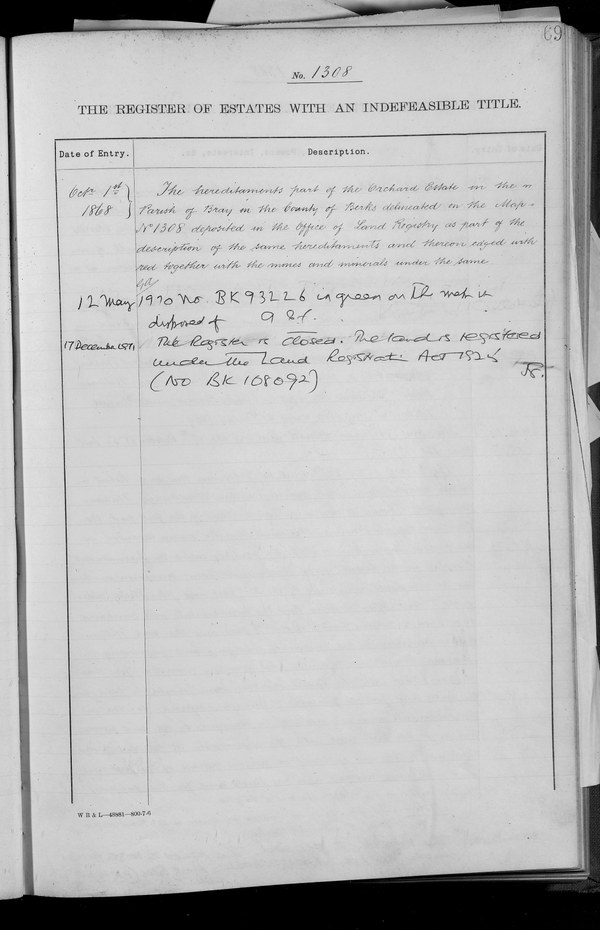 69
No. 1308
THE REGISTER OF ESTATES WITH AN INDEFEASIBLE TITLE.
Date of Entry. Description.
Octr 1st 1868 The hereditaments part of the Orchard Estate in the
Parish of Bray in the County of Berks delineated in the Map
No 1308 deposited in the Office of Land Registry as part of the
description of the same hereditaments and thereon edged with
red together with the mines and minerals under the same
12 May 1970 No. BK93226 in green on the map is
disposed of
17 December 1971 The Register is closed. The land is registered
under the Land Registration Act 1925
(No BK 108092)
W B & L—48881—800-7-6